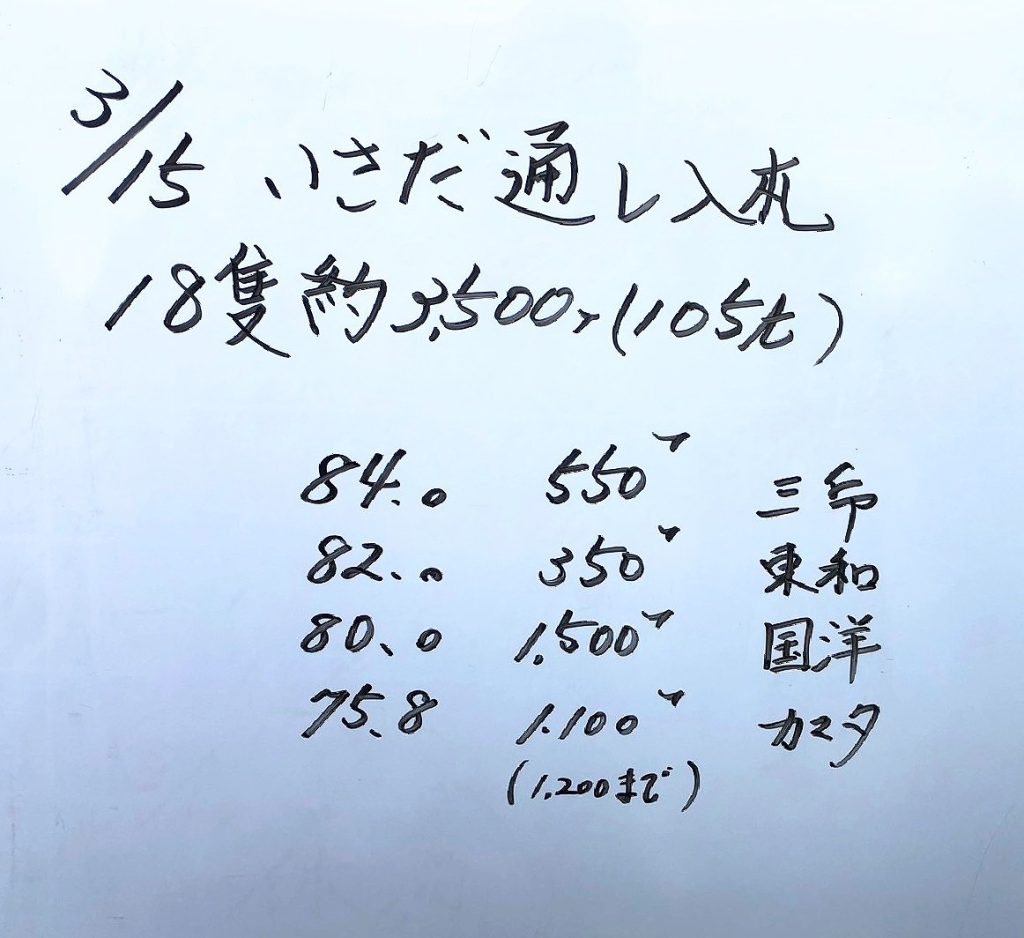 3/15 いさだ通し入札
18隻 約3,500ケ(105t)
84.0 550ケ 三印
82.0 350ケ 東和
80.0 1,500ケ 国洋
75.8 1.100ケ カマタ
(1.200まで)